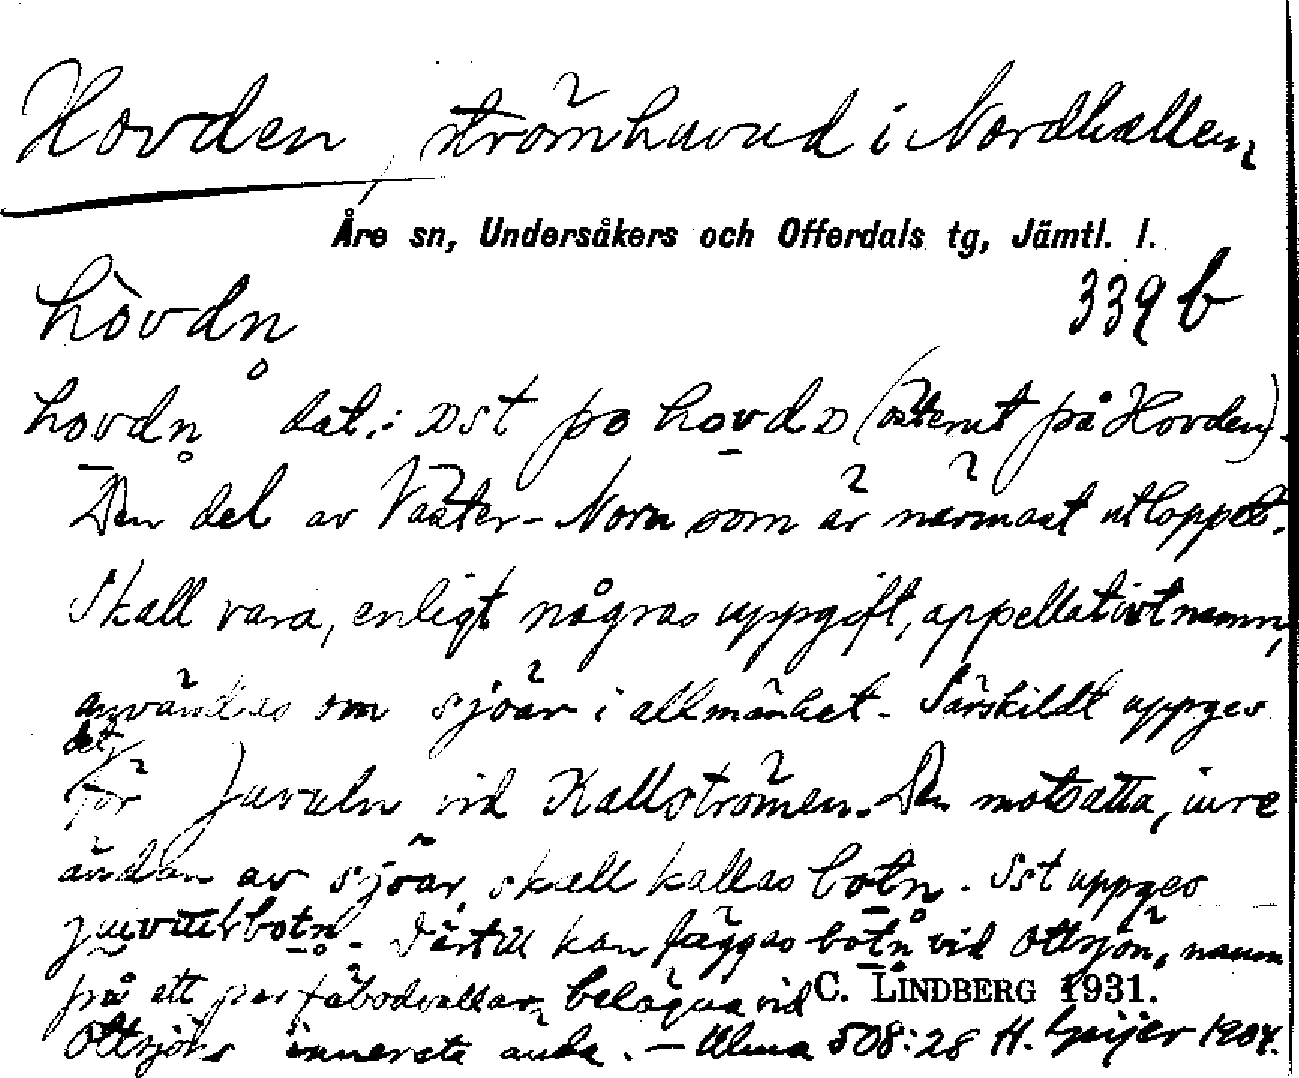 Hovden, strömhuvud i Nordhallen
Åre sn, Undersåkers och Offerdals tg, Jämtl. l.
hòvdn̥
339 b
hovdn̥ dat.: øst po hovdø (österut på Hovden).
Den del av Väster-Norn som är närmast utloppet.
Skall vara, enligt någras uppgift, appellativt namn,
användes om sjöar i allmänhet. Särskildt uppges
det
för Juvuln vid Kallströmen. Den motsatta, inre
ändan av sjöar, skall kallas botn. Sst uppges
juvulbotn̥. Därtill kan läggas botn̥ vid Ottsjön, namn
på ett par fäbodvallar, belägna vid
C. LINDBERG 1931.
Ottsjöns innersta ända. — Ulma 508:28 H. Geijer 1904.